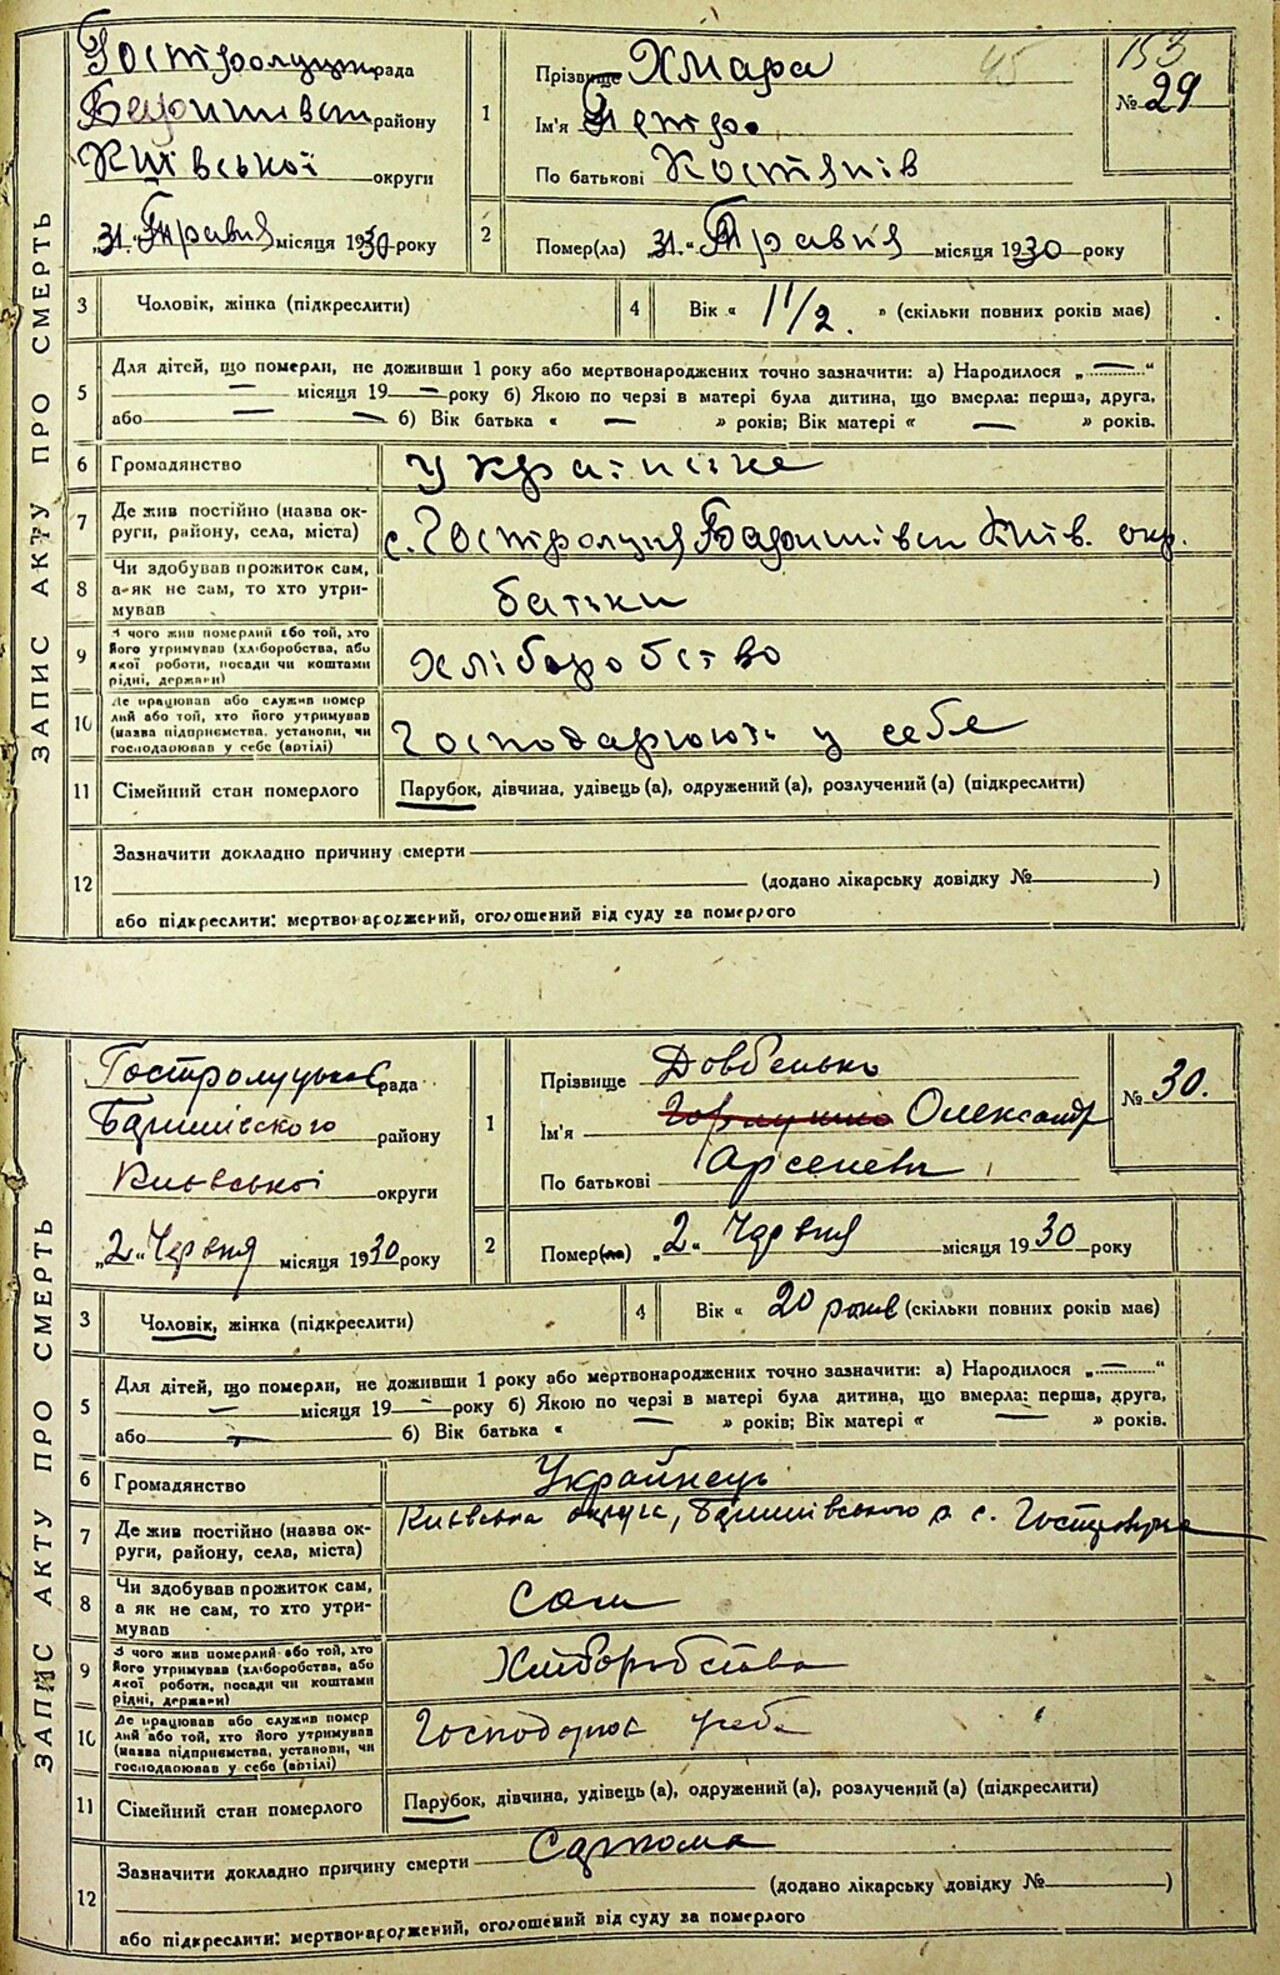 ЗАПИС АКТУ ПРО СМЕРТЬ
Гостролуцька рада
Баришівськ району
Київської округи
„31“ Травня місяця 1930 року
1
Прізвище Хмара
45
Ім'я Петро
По батькові Костянів
153
№ 29
2
Помер(ла) „31“ Травня місяця 1930 року
3 Чоловік, жінка (підкреслити)
4 Вік « 1 1/2. » (скільки повних років має)
5 Для дітей, що померли, не доживши 1 року або мертвонароджених точно зазначити: а) Народилося „ — “
— місяця 19 — року б) Якою по черзі в матері була дитина, що вмерла: перша, друга,
або — — б) Вік батька « — » років; Вік матері « — » років.
6 Громадянство Українське
7 Де жив постійно (назва ок-
руги, району, села, міста) с. Гостролуця Баришівськ Київ. окр.
8 Чи здобував прожиток сам,
а як не сам, то хто утри-
мував батьки
9 З чого жив померлий або той, хто
його утримував (хліборобства, або
якої роботи, посади чи коштами
рідні, держави) хліборобство
10 Де працював або служив помер
лий або той, хто його утримував
(назва підприємства, установи, чи
господарював у себе (артілі) Господарюють у себе
11 Сімейний стан померлого Парубок, дівчина, удівець (а), одружений (а), розлучений (а) (підкреслити)
12 Зазначити докладно причину смерти
(додано лікарську довідку № )
або підкреслити: мертвонароджений, оголошений від суду за померлого
ЗАПИС АКТУ ПРО СМЕРТЬ
Гостролуцька рада
Баришівского району
Київської округи
„2“ Червня місяця 1930 року
1
Прізвище Довбенько
Ім'я Олександр
По батькові Арсенев
№ 30.
2
Помер(ла) „2“ Червня місяця 1930 року
3 Чоловік, жінка (підкреслити)
4 Вік « 20 років (скільки повних років має)
5 Для дітей, що померли, не доживши 1 року або мертвонароджених точно зазначити: а) Народилося „ — “
— місяця 19 — року б) Якою по черзі в матері була дитина, що вмерла: перша, друга,
або — б) Вік батька « — » років; Вік матері « — » років.
6 Громадянство Українець
7 Де жив постійно (назва ок-
руги, району, села, міста) Київська округа, Баришівського р. с. Гостролуча
8 Чи здобував прожиток сам,
а як не сам, то хто утри-
мував сам
9 З чого жив померлий або той, хто
його утримував (хліборобства, або
якої роботи, посади чи коштами
рідні, держави) Хліборобства
10 Де працював або служив помер
лий або той, хто його утримував
(назва підприємства, установи, чи
господарював у себе (артілі) Господарює у себе
11 Сімейний стан померлого Парубок, дівчина, удівець (а), одружений (а), розлучений (а) (підкреслити)
12 Зазначити докладно причину смерти Саркома
(додано лікарську довідку № )
або підкреслити: мертвонароджений, оголошений від суду за померлого